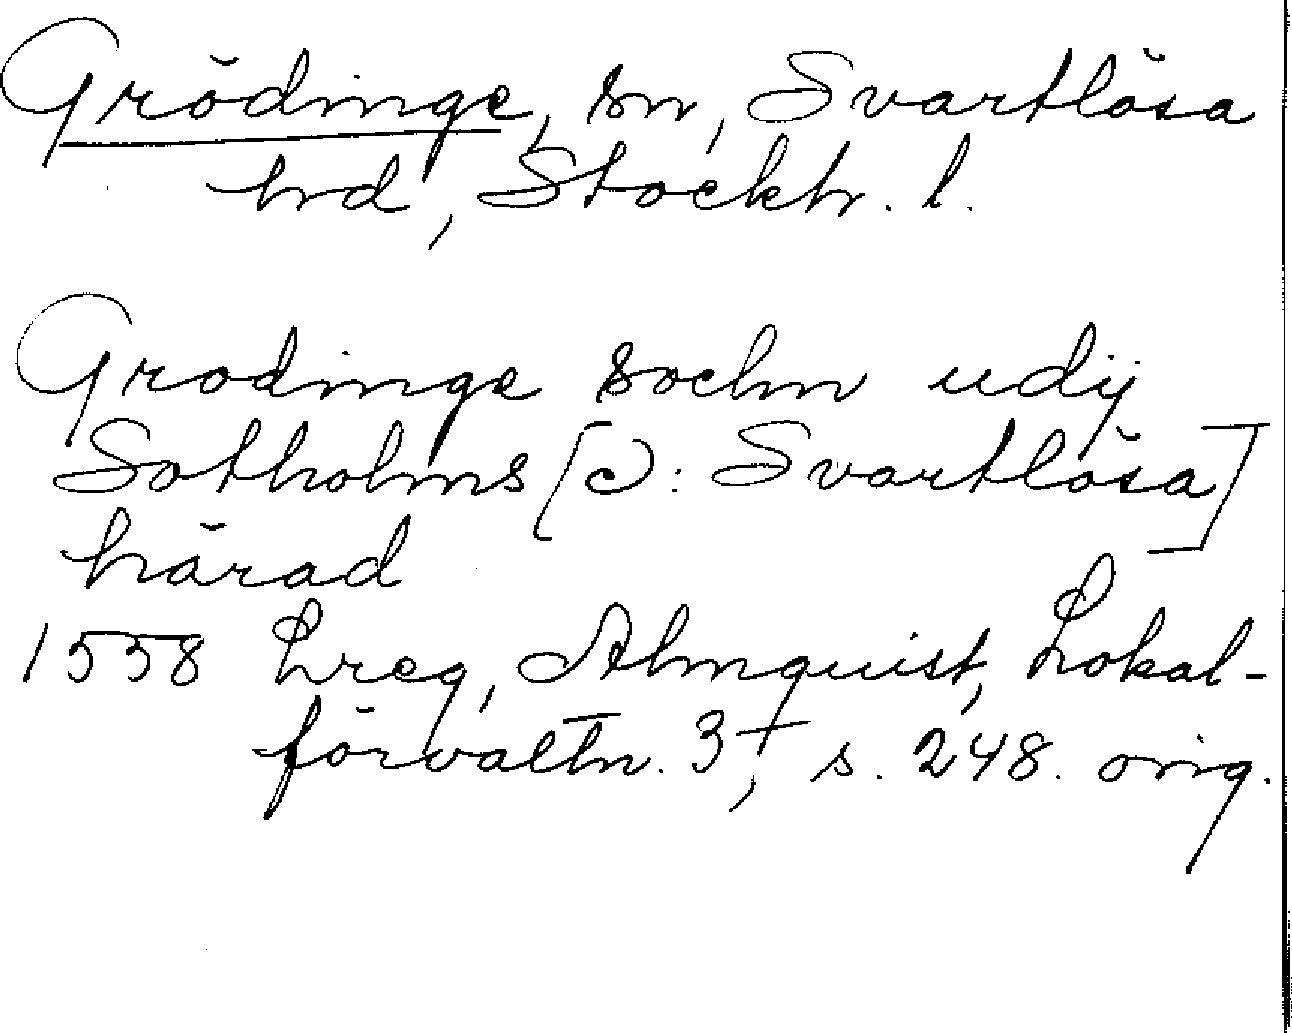 Grödinge, sn, Svartlösa
hrd, Stockh. l.
Grodinge sochn udij
Sotholms [ɔ: Svartlösa]
härad
1558 Lreg, Almquist, Lokal-
förvaltn. 3, s. 248. orig.